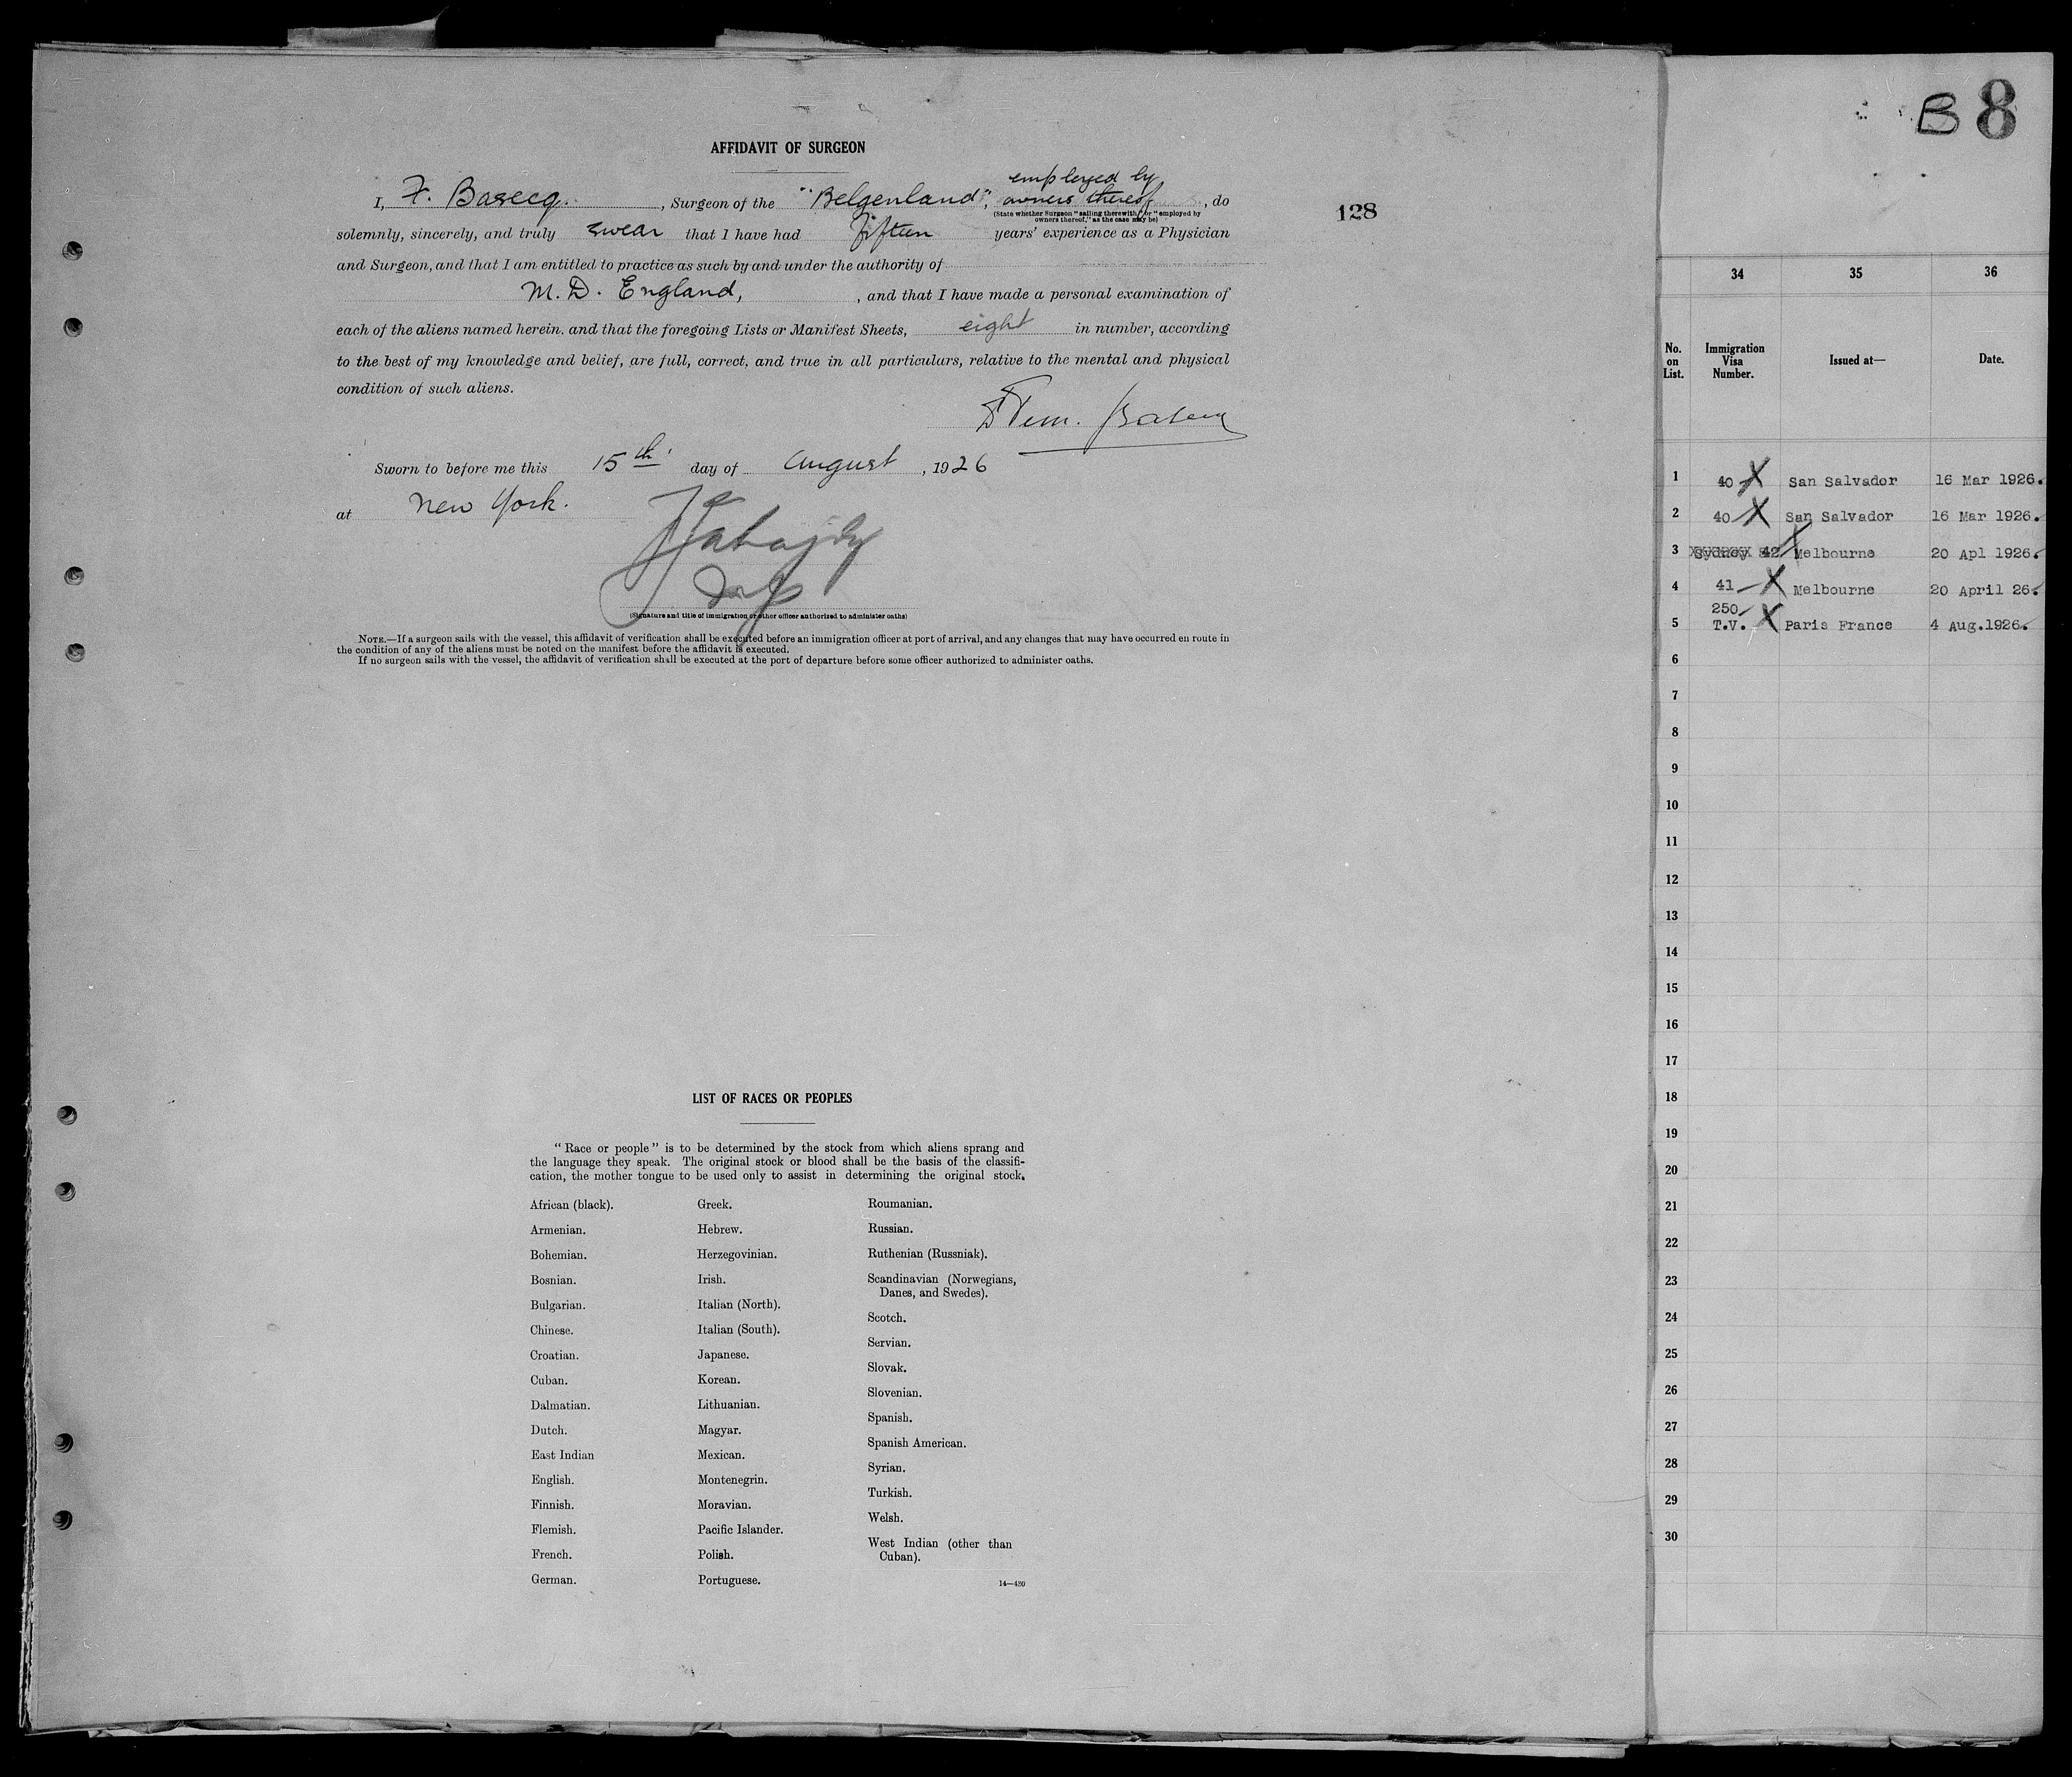 B 8
AFFIDAVIT OF SURGEON
employed by
I, F. Basecq. , Surgeon of the "Belgenland", owners thereof , do
(State whether Surgeon "sailing therewith," or "employed by
owners thereof," as the case may be)
128
solemnly, sincerely, and truly swear that I have had fifteen years' experience as a Physician
and Surgeon, and that I am entitled to practice as such by and under the authority of
M. D. England, , and that I have made a personal examination of
each of the aliens named herein, and that the foregoing Lists or Manifest Sheets, eight in number, according
to the best of my knowledge and belief, are full, correct, and true in all particulars, relative to the mental and physical
condition of such aliens.
Sworn to before me this 15th day of August , 1926
at New York.
(Signature and title of immigration or other officer authorized to administer oaths)
NOTE.—If a surgeon sails with the vessel, this affidavit of verification shall be executed before an immigration officer at port of arrival, and any changes that may have occurred en route in
the condition of any of the aliens must be noted on the manifest before the affidavit is executed.
If no surgeon sails with the vessel, the affidavit of verification shall be executed at the port of departure before some officer authorized to administer oaths.
LIST OF RACES OR PEOPLES
"Race or people" is to be determined by the stock from which aliens sprang and
the language they speak. The original stock or blood shall be the basis of the classifi-
cation, the mother tongue to be used only to assist in determining the original stock.
African (black).
Armenian.
Bohemian.
Bosnian.
Bulgarian.
Chinese.
Croatian.
Cuban.
Dalmatian.
Dutch.
East Indian
English.
Finnish.
Flemish.
French.
German.
Greek.
Hebrew.
Herzegovinian.
Irish.
Italian (North).
Italian (South).
Japanese.
Korean.
Lithuanian.
Magyar.
Mexican.
Montenegrin.
Moravian.
Pacific Islander.
Polish.
Portuguese.
Roumanian.
Russian.
Ruthenian (Russniak).
Scandinavian (Norwegians,
Danes, and Swedes).
Scotch.
Servian.
Slovak.
Slovenian.
Spanish.
Spanish American.
Syrian.
Turkish.
Welsh.
West Indian (other than
Cuban).
14—430
34 35 36
No. on List. Immigration Visa Number. Issued at— Date.
1 40 X San Salvador 16 Mar 1926.
2 40 X San Salvador 16 Mar 1926.
3 Sydney 42 X Melbourne 20 Apl 1926.
4 41 X Melbourne 20 April 26.
250
5 T.V. X Paris France 4 Aug.1926.
6
7
8
9
10
11
12
13
14
15
16
17
18
19
20
21
22
23
24
25
26
27
28
29
30